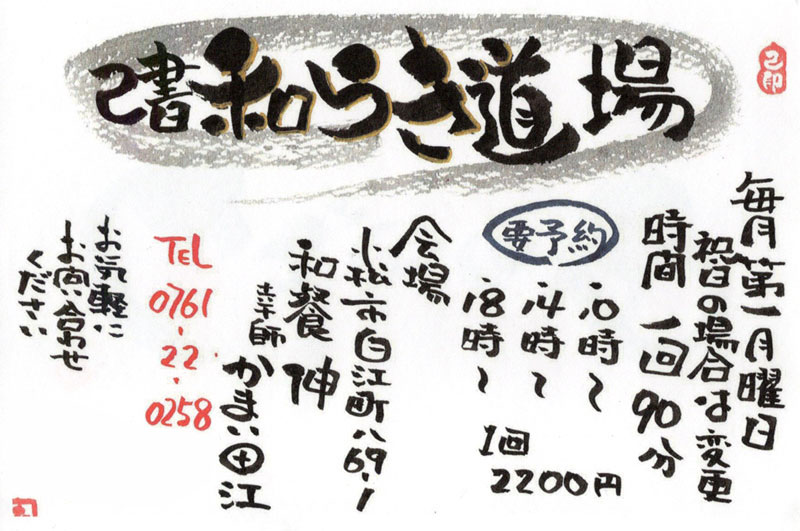 己書和らき道場
己印
毎月第一月曜日
祝日の場合は変更
時間 一回90分
要予約
10時〜
14時〜
18時〜
1回
2200円
会場
小松市白江町ハ69-1
和餐 伸
幸師 かまい田江
TEL
0761-
22-
0258
お気軽に
お問い合わせ
ください